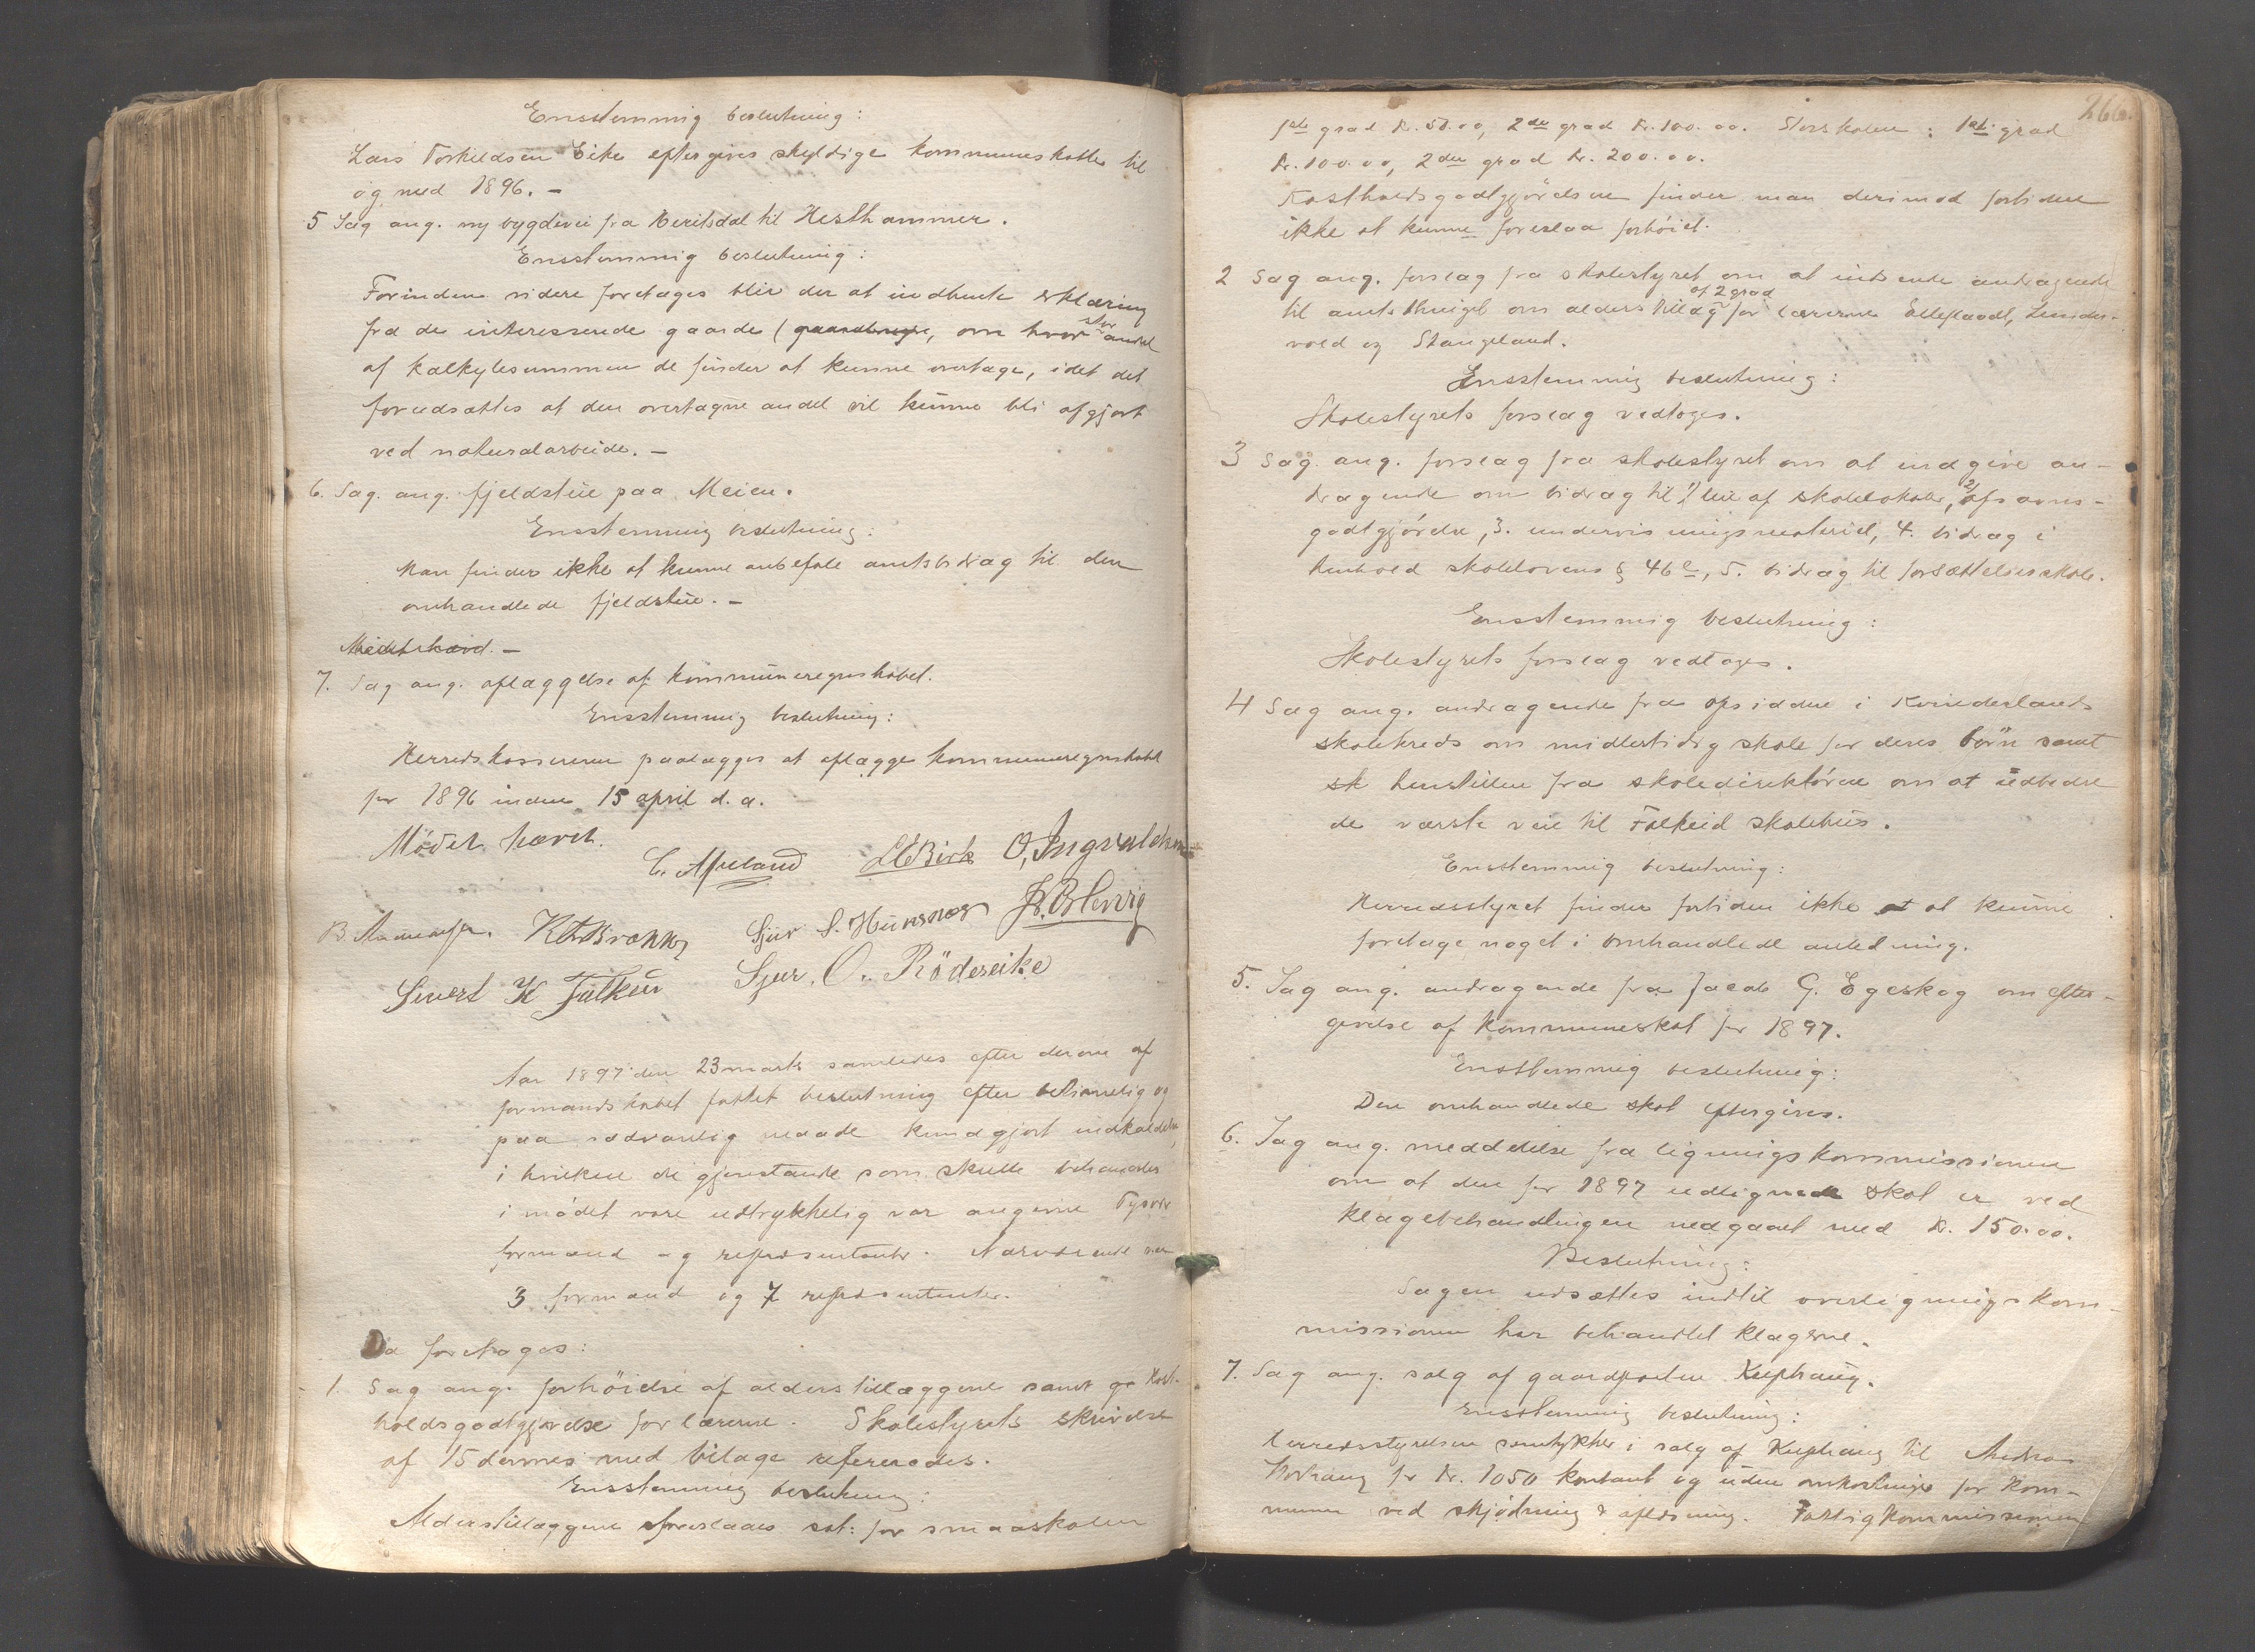 Ensstemmig beslutning:
Lars Torkildsen Eike eftergives skyldige kommuneskatter til
og med 1896. -
5 Sag ang. ny bygdevei fra Keritsdal til Hesthammer.
Ensstemmig beslutning:
Forinden videre foretages blir der at indhente erklæring
fra de interesserede gaarde (gaardbruger, om hvor stor andel
af kalkylesummen de finder at kunne overtage, idet det
forudsættes at den overtagne andel vil kunne bli afgjort
ved naturalarbeide. -
6. Sag. ang. fjeldstue paa Meien.
Ensstemmig beslutning:
Man finder ikke at kunne anbefale amtsbidrag til den
omhandlede fjeldstue. -
Mødet hævd. -
7. Sag ang. aflæggelse af kommuneregnskabet.
Ensstemmig beslutning:
Herredskassereren paalægges at aflægge kommuneregnskabet
for 1896 inden 15 april d. a.
Mødet hævet.
C. Apeland LCBirk O, Ingvaldsen
B. Aamundsen. Sjur S. Hunsnæs
Sivert K Falkeid Sjur. O. Rödereike
Aar 1897 den 23 marts samledes efter derom af
formandskabet fattet beslutning efter betimelig og
paa sædvanlig maade kundgjort indkaldelse,
i hvilken de gjenstande som skulle behandles
i mødet vare udtrykkelig var angivne Tysvær
formænd og repræsentanter. Nærværende var
3 formænd og 7 repræsentanter.
Da foretoges:
1. Sag ang. forhöielse af alderstillæggene samt go kost-
holdsgodtgjørelse for lærerne. Skolestyrets skrivelse
af 15 dennes med bilage refereredes.
Ensstemmig beslutning:
Alderstillæggene foreslaaes sat: for smaaskolen
266.
1ste grad Kr. 50.00, 2den grad Kr. 100.00. Storskolen: 1ste grad
Kr. 100.00, 2den grad Kr. 200.00.
Kostholdsgodtgjørelsen finder man derimod fortiden
ikke at kunne foreslaa forhöiet.
2 Sag ang. forslag fra skolestyret om at indsende andragende
til amtsthinget om alderstillæg af 2 grad for lærerne Ellefland, Lunder-
vold og Stangeland.
Ensstemmig beslutning:
Skolestyrets forslag vedtoges.
3 Sag. ang. forslag fra skolestyret om at indgive an-
dragende om bidrag til 1) leie af skolelokaler, 2) afsavns-
godtgjörelse, 3. undervisningsmateriel, 4. bidrag i
henhold skolelovens § 46 e, 5. bidrag til fortsættelsesskole.
Ensstemmig beslutning:
Skolestyrets forslag vedtoges.
4 Sag ang. andragende fra opsiddere i Kvinderlands
skolekreds om midlertidig skole for deres börn samt
sk henstillen fra skoledirektören om at udbedre
de værste veie til Falkeid skolehus.
Ensstemmig beslutning:
Herredsstyret finder fortiden ikke at at kunne
foretage noget i omhandlede anledning.
5. Sag ang. andragende fra Jacob G. Egeskog om efter-
givelse af kommuneskat for 1897.
Ensstemmig beslutning:
Den omhandlede skat eftergives.
6. Sag ang. meddelelse fra ligningskommissionen
om at den for 1897 udlignede skat er ved
klagebehandlingen nedgaaet med Kr. 150.00.
Beslutning:
Sagen udsættes indtil overligningskom-
missionen har behandlet klagerne.
7. Sag ang. salg af gaardparten Kuphaug.
Ensstemmig beslutning:
Herredsstyrelsen samtykker i salg af Kuphaug til Andreas
for Kr. 1050 kontant og uden omkostninger for kom-
munen ved skjödning & aflæsning. Fattigkommissionen